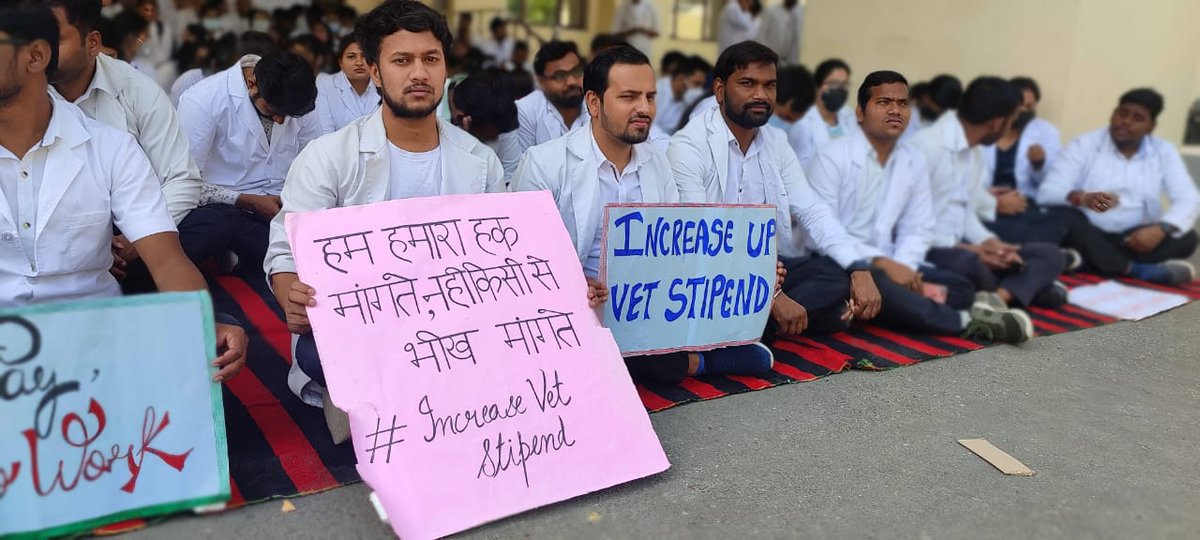 Pay,
Work
हम हमारा हक
मांगते, नहीं किसी से
भीख मांगते
# Increase Vet
Stipend
INCREASE UP
VET STIPEND